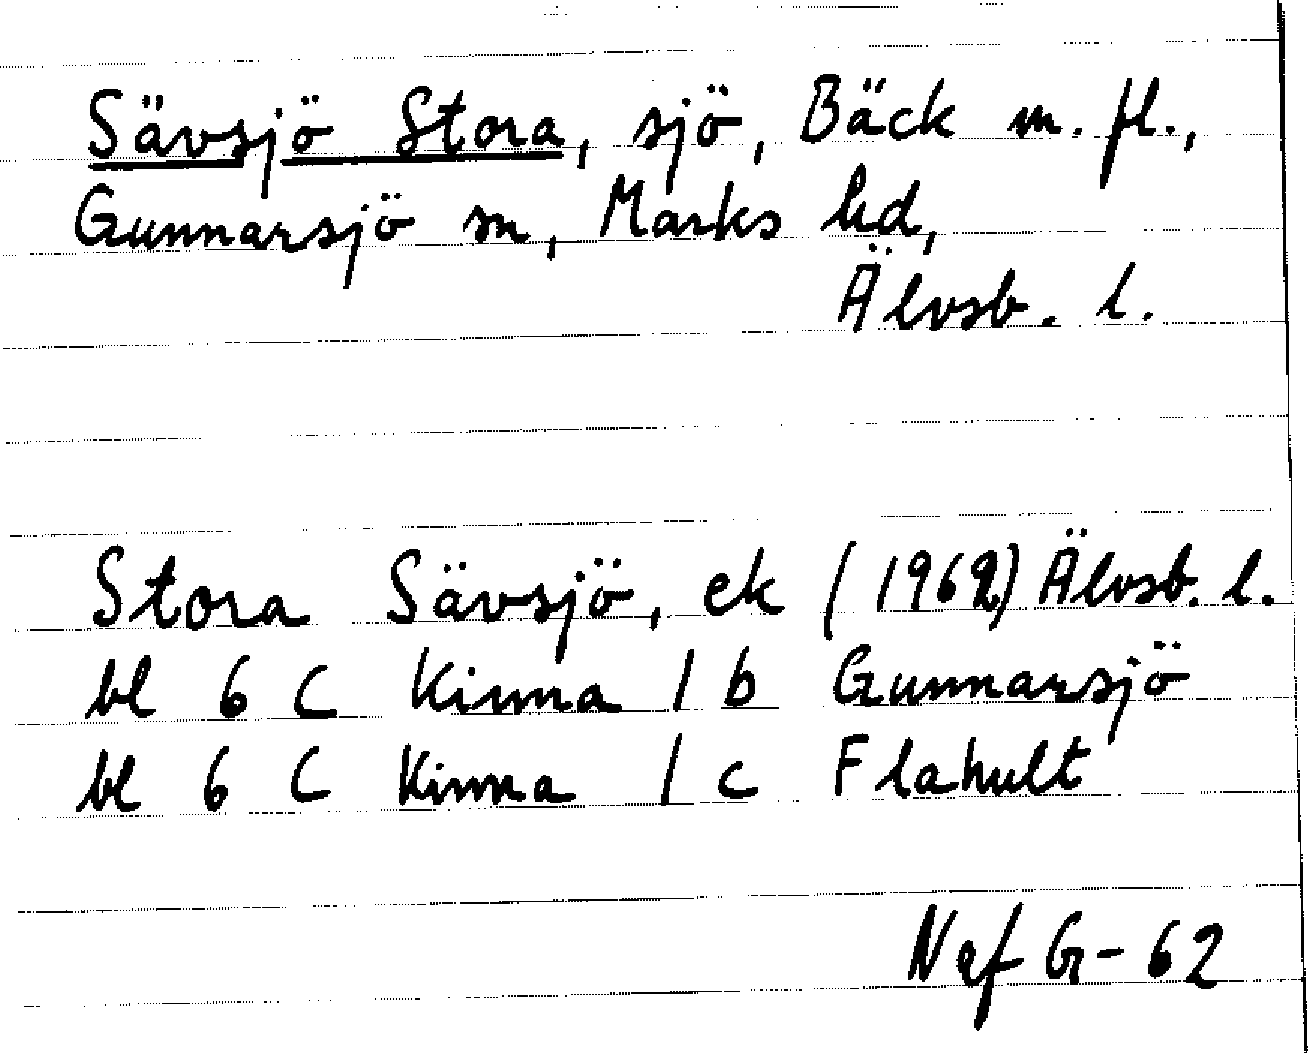 Sävsjö Stora, sjö, Bäck m. fl.,
Gunnarsjö sn, Marks hd,
Älvsb. l.
Stora Sävsjö, ek (1962) Älvsb. l.
bl 6 C Kinna 1 b Gunnarsjö
bl 6 C Kinna 1 c Flahult
G-62